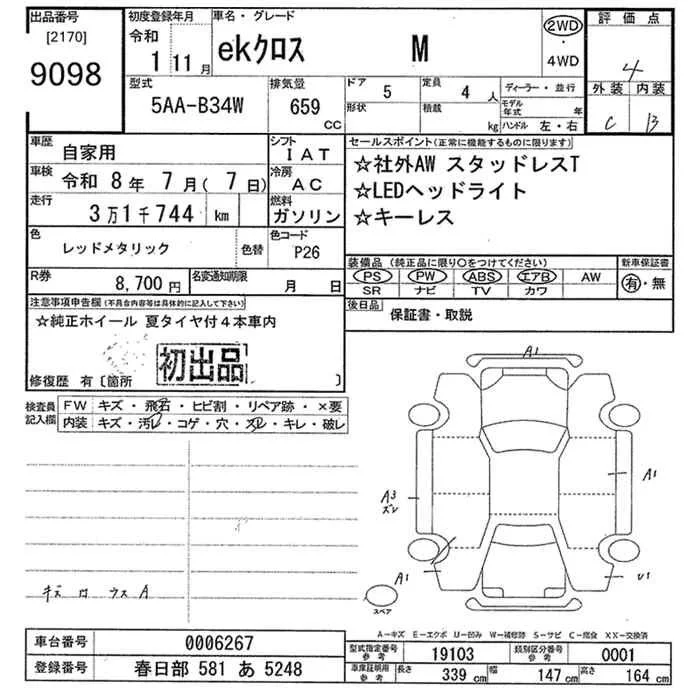 出品番号
[2170]
9098
初度登録年月
令和
1 11月
車名・グレード
ekクロス M
2WD
・
4WD
評価点
4
外装 内装
C B
型式
5AA-B34W
排気量
659
cc
ドア
5
定員
4 人
形状
積載
kg
ディーラー・並行
モデル年式 年
ハンドル 左・右
車歴
自家用
シフト
IAT
車検
令和 8年 7月( 7日)
冷房
AC
走行
3万1千744 km
燃料
ガソリン
色
レッドメタリック
色替
色コード
P26
R券
8,700円
名変通知期限
月 日
セールスポイント(正常に機能するものに限ります)
☆社外AW スタッドレスT
☆LEDヘッドライト
☆キーレス
装備品 (純正品に限り〇をつけてください)
PS PW ABS エアB AW
SR ナビ TV カワ
新車保証書
有・無
後日品
保証書・取説
注意事項申告欄(不具合内容等は具体的に記入して下さい)
☆純正ホイール 夏タイヤ付4本車内
初出品
修復歴 有〔箇所 〕
検査員
記入欄
FW キズ・飛石・ヒビ割・リペア跡・×要
内装 キズ・汚レ・コゲ・穴・スレ・キレ・破レ
A1
A1
A3
ズレ
A1
U1
スペア
A－キズ E－エクボ U－凹み W－補修跡 S－サビ C－腐食 XX－交換済
車台番号 0006267
登録番号 春日部 581 あ 5248
型式指定番号
参考
19103
類別区分番号
参考
0001
車庫証明用
参考
長さ 339 cm 幅 147 cm 高さ 164 cm